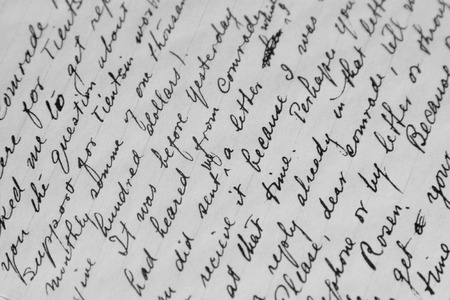 Comrade
ere for Tients
ked me to get
you the question about
Support for Tientsin work
month somme 1 one thousan
ive hundred dollars).
It was before yesterday
had heared from Comrade
ou did not sent a letter
receive it because I was
at that time. Perhaps you
a reply already in that lett
Please, dear comrade, tell m
phone or by letter or throug
Rosen. Because
get your
time